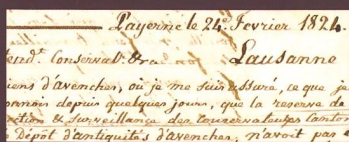 Payerne le 24.e Fevrier 1824.
Conservat. Lausanne
iens d'avenches, où je me suis assuré, ce que je
onnois depuis quelques jours, que la reserve de
ction & surveillance des conservateurs canton
Dépôt d'antiquités d'avenches, n'avoit pas